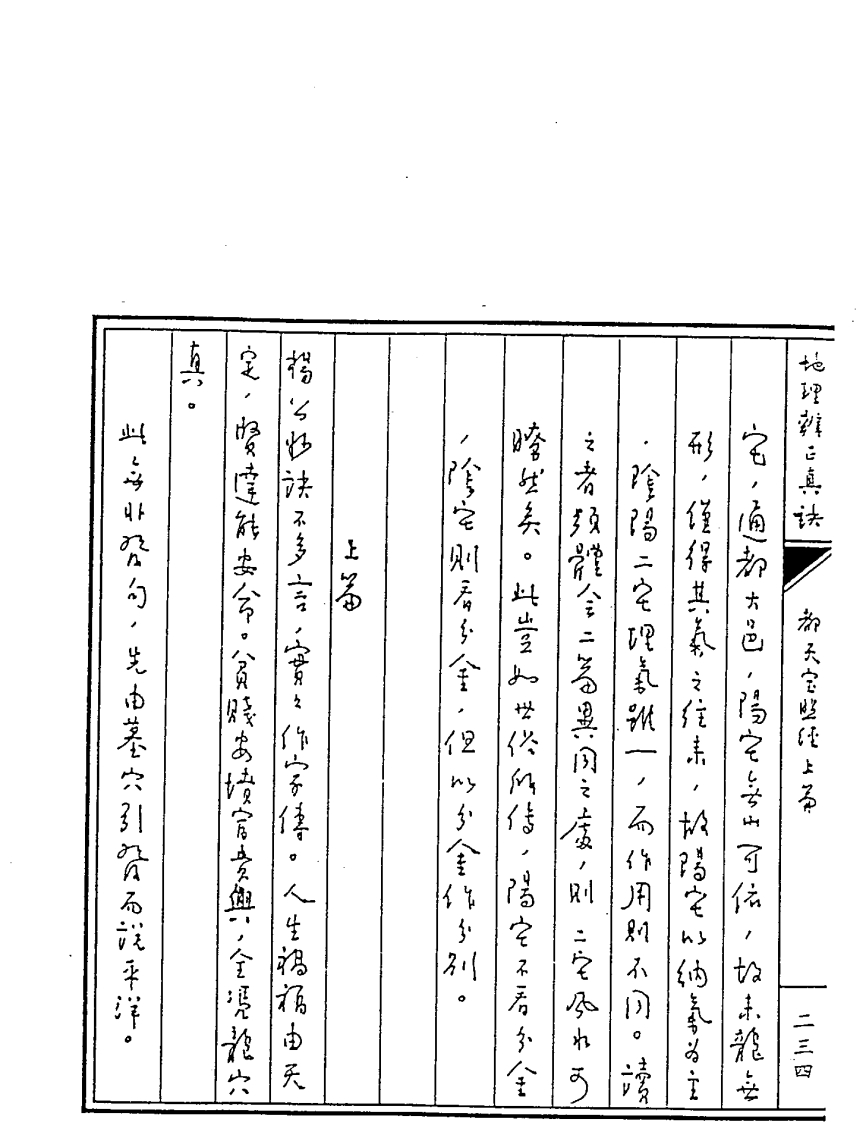 地理辨正真訣　都天宝照經上篇　二三四
宅，通都大邑，陽宅無山可依，故來龍無
形，僅得其氣之往來，故陽宅以納氣為主
，陰陽二宅理氣雖一，而作用則不同。讀
之者須體會二篇異同之處，則二宅風水可
瞭然矣。此豈如世俗所傳，陽宅不看分金
，陰宅則看分金，但以分金作分別。
上篇
楊公妙訣不多言，實々作家傳。人生禍福由天
定，賢達能安命。貧賤安墳富貴興，全憑龍穴
真。
此無非發句，先由墓穴引發而說平洋。